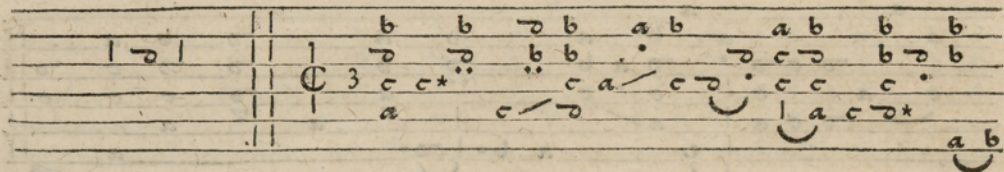 b b d b a b a b b b
| d | d d b b d c d b d b
3 c c* c a c d c c c
a c d a c d*
a b